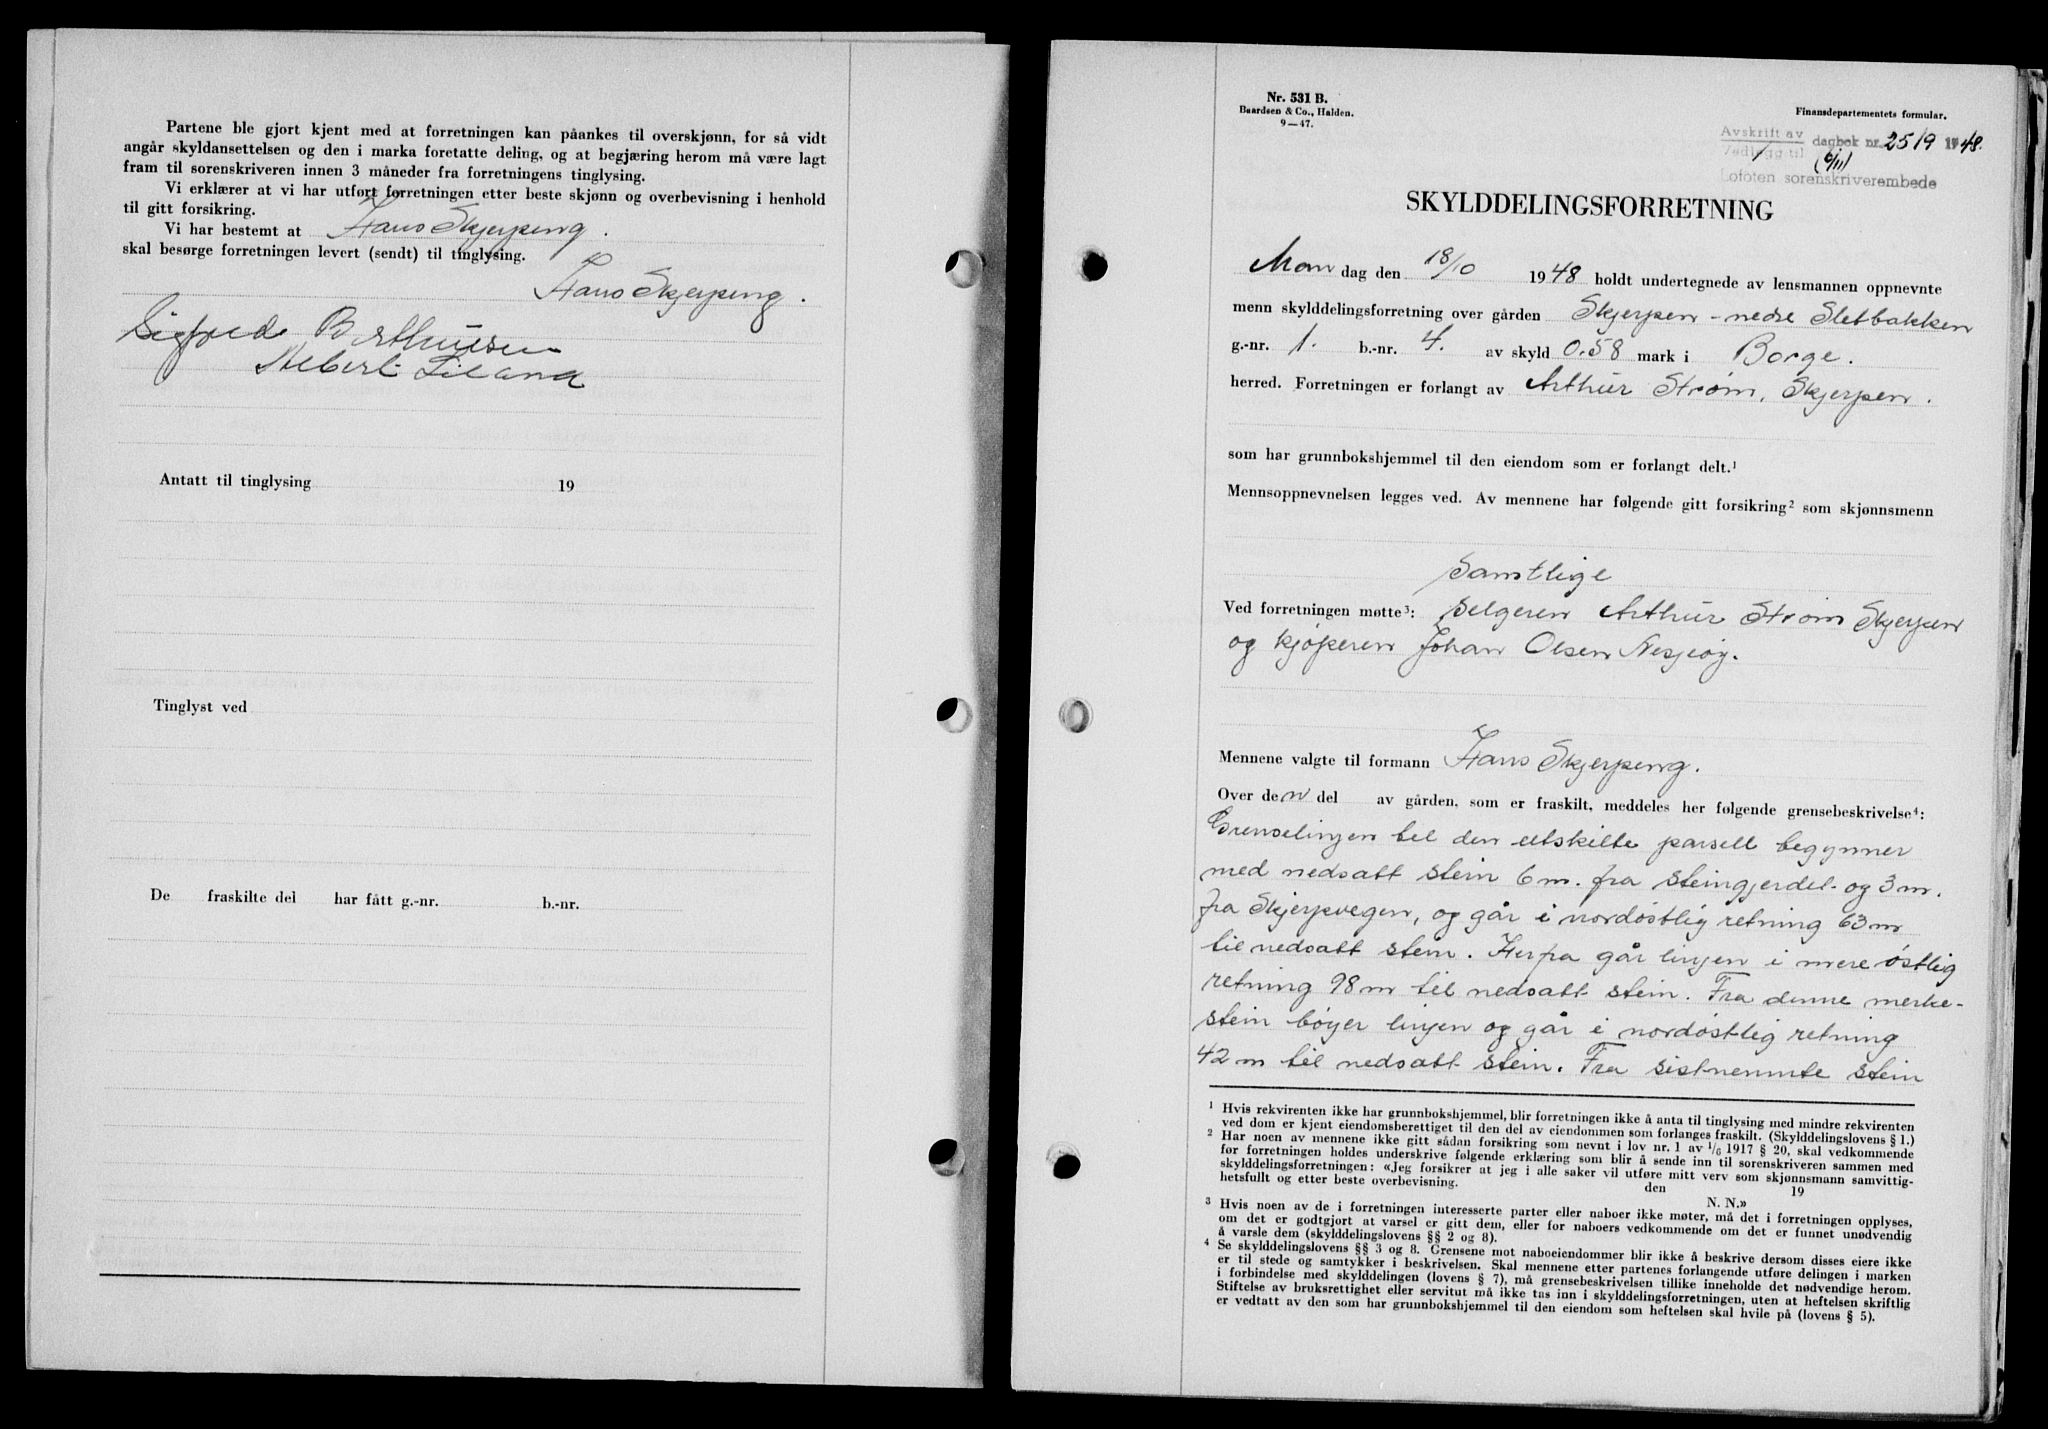 Partene ble gjort kjent med at forretningen kan påankes til overskjønn, for så vidt
angår skyldansettelsen og den i marka foretatte deling, og at begjæring herom må være lagt
fram til sorenskriveren innen 3 måneder fra forretningens tinglysing.
Vi erklærer at vi har utført forretningen etter beste skjønn og overbevisning i henhold
til gitt forsikring.
Vi har bestemt at Hans Skjerpeng.
skal besørge forretningen levert (sendt) til tinglysing.
Hans Skjerpeng.
Sigfred Berthinsen
Albert Liland
Antatt til tinglysing 19
Tinglyst ved
De fraskilte del har fått g.-nr. b.-nr.
Nr. 531 B.
Baardsen & Co., Halden.
9—47.
Finansdepartementets formular.
Avskrift av
Vedlegg til dagbok nr. 2519 1948.
(6/11)
Lofoten sorenskriverembede
SKYLDDELINGSFORRETNING
Man dag den 18/10 1948 holdt undertegnede av lensmannen oppnevnte
menn skylddelingsforretning over gården Skjerpen - nedre Sletbakken
g.-nr. 1. b.-nr. 4. av skyld 0.58 mark i Borge.
herred. Forretningen er forlangt av Arthur Strøm, Skjerpen.
som har grunnbokshjemmel til den eiendom som er forlangt delt.¹
Mennsoppnevnelsen legges ved. Av mennene har følgende gitt forsikring² som skjønnsmenn
Samtlige
Ved forretningen møtte³: Selgeren Arthur Strøm Skjerpen
og kjøperen Johan Olsen Nesjeøy.
Mennene valgte til formann Hans Skjerpeng.
Over den del av gården, som er fraskilt, meddeles her følgende grensebeskrivelse⁴:
Grenselinjen til den utskilte parsell begynner
med nedsatt stein 6 m. fra steingjerdet og 3 m.
fra Skjerpvegen, og går i nordøstlig retning 63 m
til nedsatt stein. Herfra går linjen i mere østlig
retning 98 m til nedsatt stein. Fra denne merke-
stein bøyer linjen og går i nordøstlig retning
42 m til nedsatt stein. Fra sistnemnte stein
¹ Hvis rekvirenten ikke har grunnbokshjemmel, blir forretningen ikke å anta til tinglysing med mindre rekvirenten
ved dom er kjent eiendomsberettiget til den del av eiendommen som forlanges fraskilt. (Skylddelingslovens § 1.)
² Har noen av mennene ikke gitt sådan forsikring som nevnt i lov nr. 1 av 1/6 1917 § 20, skal vedkommende
før forretningen holdes underskrive følgende erklæring som blir å sende inn til sorenskriveren sammen med
skylddelingsforretningen: «Jeg forsikrer at jeg i alle saker vil utføre mitt verv som skjønnsmann samvittig-
hetsfullt og etter beste overbevisning. den 19
N. N.»
³ Hvis noen av de i forretningen interesserte parter eller naboer ikke møter, må det i forretningen opplyses,
om det er godtgjort at varsel er gitt dem, eller for naboers vedkommende om det er funnet unødvendig
å varsle dem (skylddelingslovens §§ 2 og 8).
⁴ Se skylddelingslovens §§ 3 og 8. Grensene mot naboeiendommer blir ikke å beskrive dersom disses eiere ikke
er til stede og samtykker i beskrivelsen. Skal mennene etter partenes forlangende utføre delingen i marken
i forbindelse med skylddelingen (lovens § 7), må grensebeskrivelsen tillike inneholde det nødvendige herom.
Stiftelse av bruksrettighet eller servitut må ikke tas inn i skylddelingsforretningen, uten at heftelsen skriftlig
er vedtatt av den som har grunnbokshjemmel til den eiendom som heftelsen skal hvile på (lovens § 5).